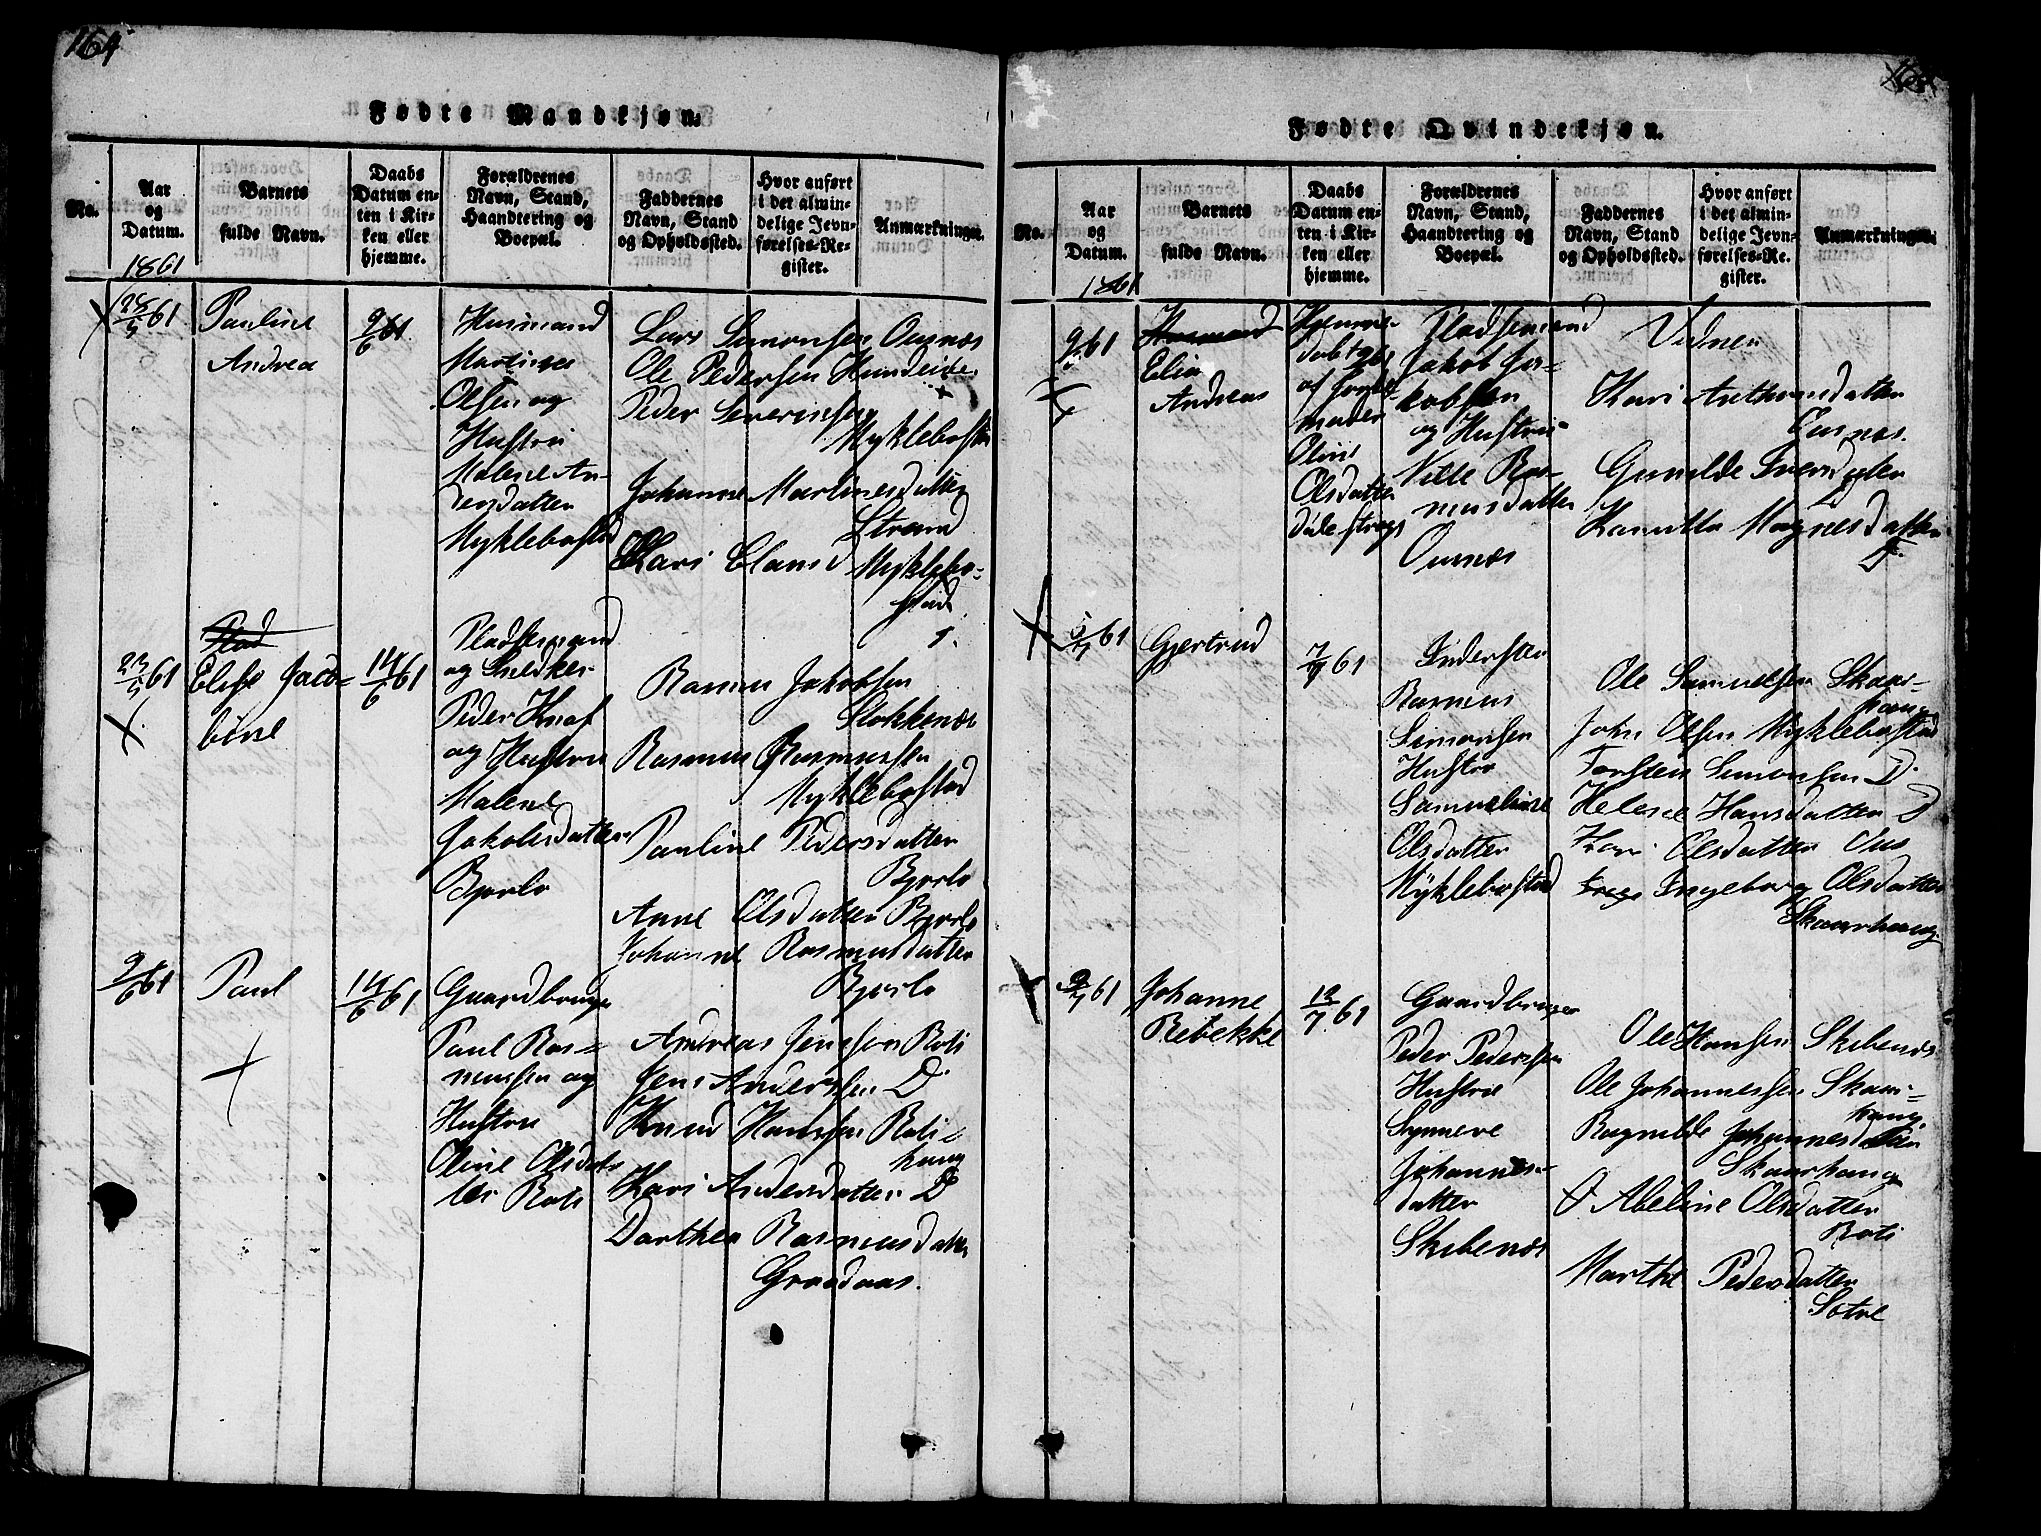 164
Fødte Mandkjøn.
No.
Aar og Datum.
Barnets fulde Navn.
Daabs Datum enten i Kirken eller hjemme.
Forældrenes Navn, Stand, Haandtering og Boepæl.
Faddernes Navn, Stand og Opholdssted.
Hvor anført i det almindelige Jevnførelses-Register.
Anmærkninger.
1861
28/5 61
Pauline
Andrea
9/6 61
Husmand
Martinus
Olsen og
Hustru
Malene An-
dersdatter
Myklebostad
Lars Simonsen Ousnæs
Ole Pedersen Hundeide
Peder Severinsen
Myklebostad
Johanne Martinesdatter
Strand
Kari Clausd Myklebo-
stad
23/5 61
Elise Jaco-
bine
14/6 61
Pladsemand
og Snedker
Peder Knaf
og Hustru
Malene
Jakobsdatter
Bjørlo
Rasmus Jakobsen
Stokkenæs
Rasmus Rasmussen
Myklebostad
Pauline Pedersdatter
Bjørlo
Anne Olsdatter Bjørlo
Johanne Rasmusdatter
Bjørlo
9/6 61
Paul
14/6 61
Gaardbruger
Paul Ras-
mussen og
Hustru
Oline Olsdat-
ter Roti
Andreas Jensen Roti
Jens Andersen D
Knud Hansen Roti-
haug
Kari Andersdatter D
Dorthea Rasmusdatter
Graadaas.
Fødte Qvindekjøn.
No.
Aar og Datum.
Barnets fulde Navn.
Daabs Datum enten i Kirken eller hjemme.
Forældrenes Navn, Stand, Haandtering og Boepæl.
Faddernes Navn, Stand og Opholdssted.
Hvor anført i det almindelige Jevnførelses-Register.
Anmærkninger.
1861
61
Elias
Andreas
Hjemme-
døbt
af Jorde-
moder
Oline
Olsdatter
Pladsemand
Jakob Ja-
kobsen
og Hustru
Ras-
musdatter
Ousnæs
Vidner
Kari Anthonsdatter
Ousnæs.
Gunilde Iversdatter
D
Magnesdatter
D.
5/7 61
Gjertrud
7/7 61
Inderster
Rasmus
Simonsen
Hustru
Samueline
Olsdatter
Myklebostad
Ole Samuelsen Skaar-
haug
John Olsen Myklebostad
Torsten Simonsen D.
Helene Hansdatter D
Kari Olsdatter Aus
Ingeborg Olsdatter
Skaarhaug
61
Johanne
Rebekke
12/7 61
Gaardbruger
Peder Pedersen
Hustru
Synneve
Johannes-
datter
Skibenæs
Ole Hansen Skibenæs
Ole Johannessen Skaar-
haug
Ragnilde Johannesdatter
Skaarhaug
Abeline Olsdatter
Roti
Marthe Pedersdatter
Sætre